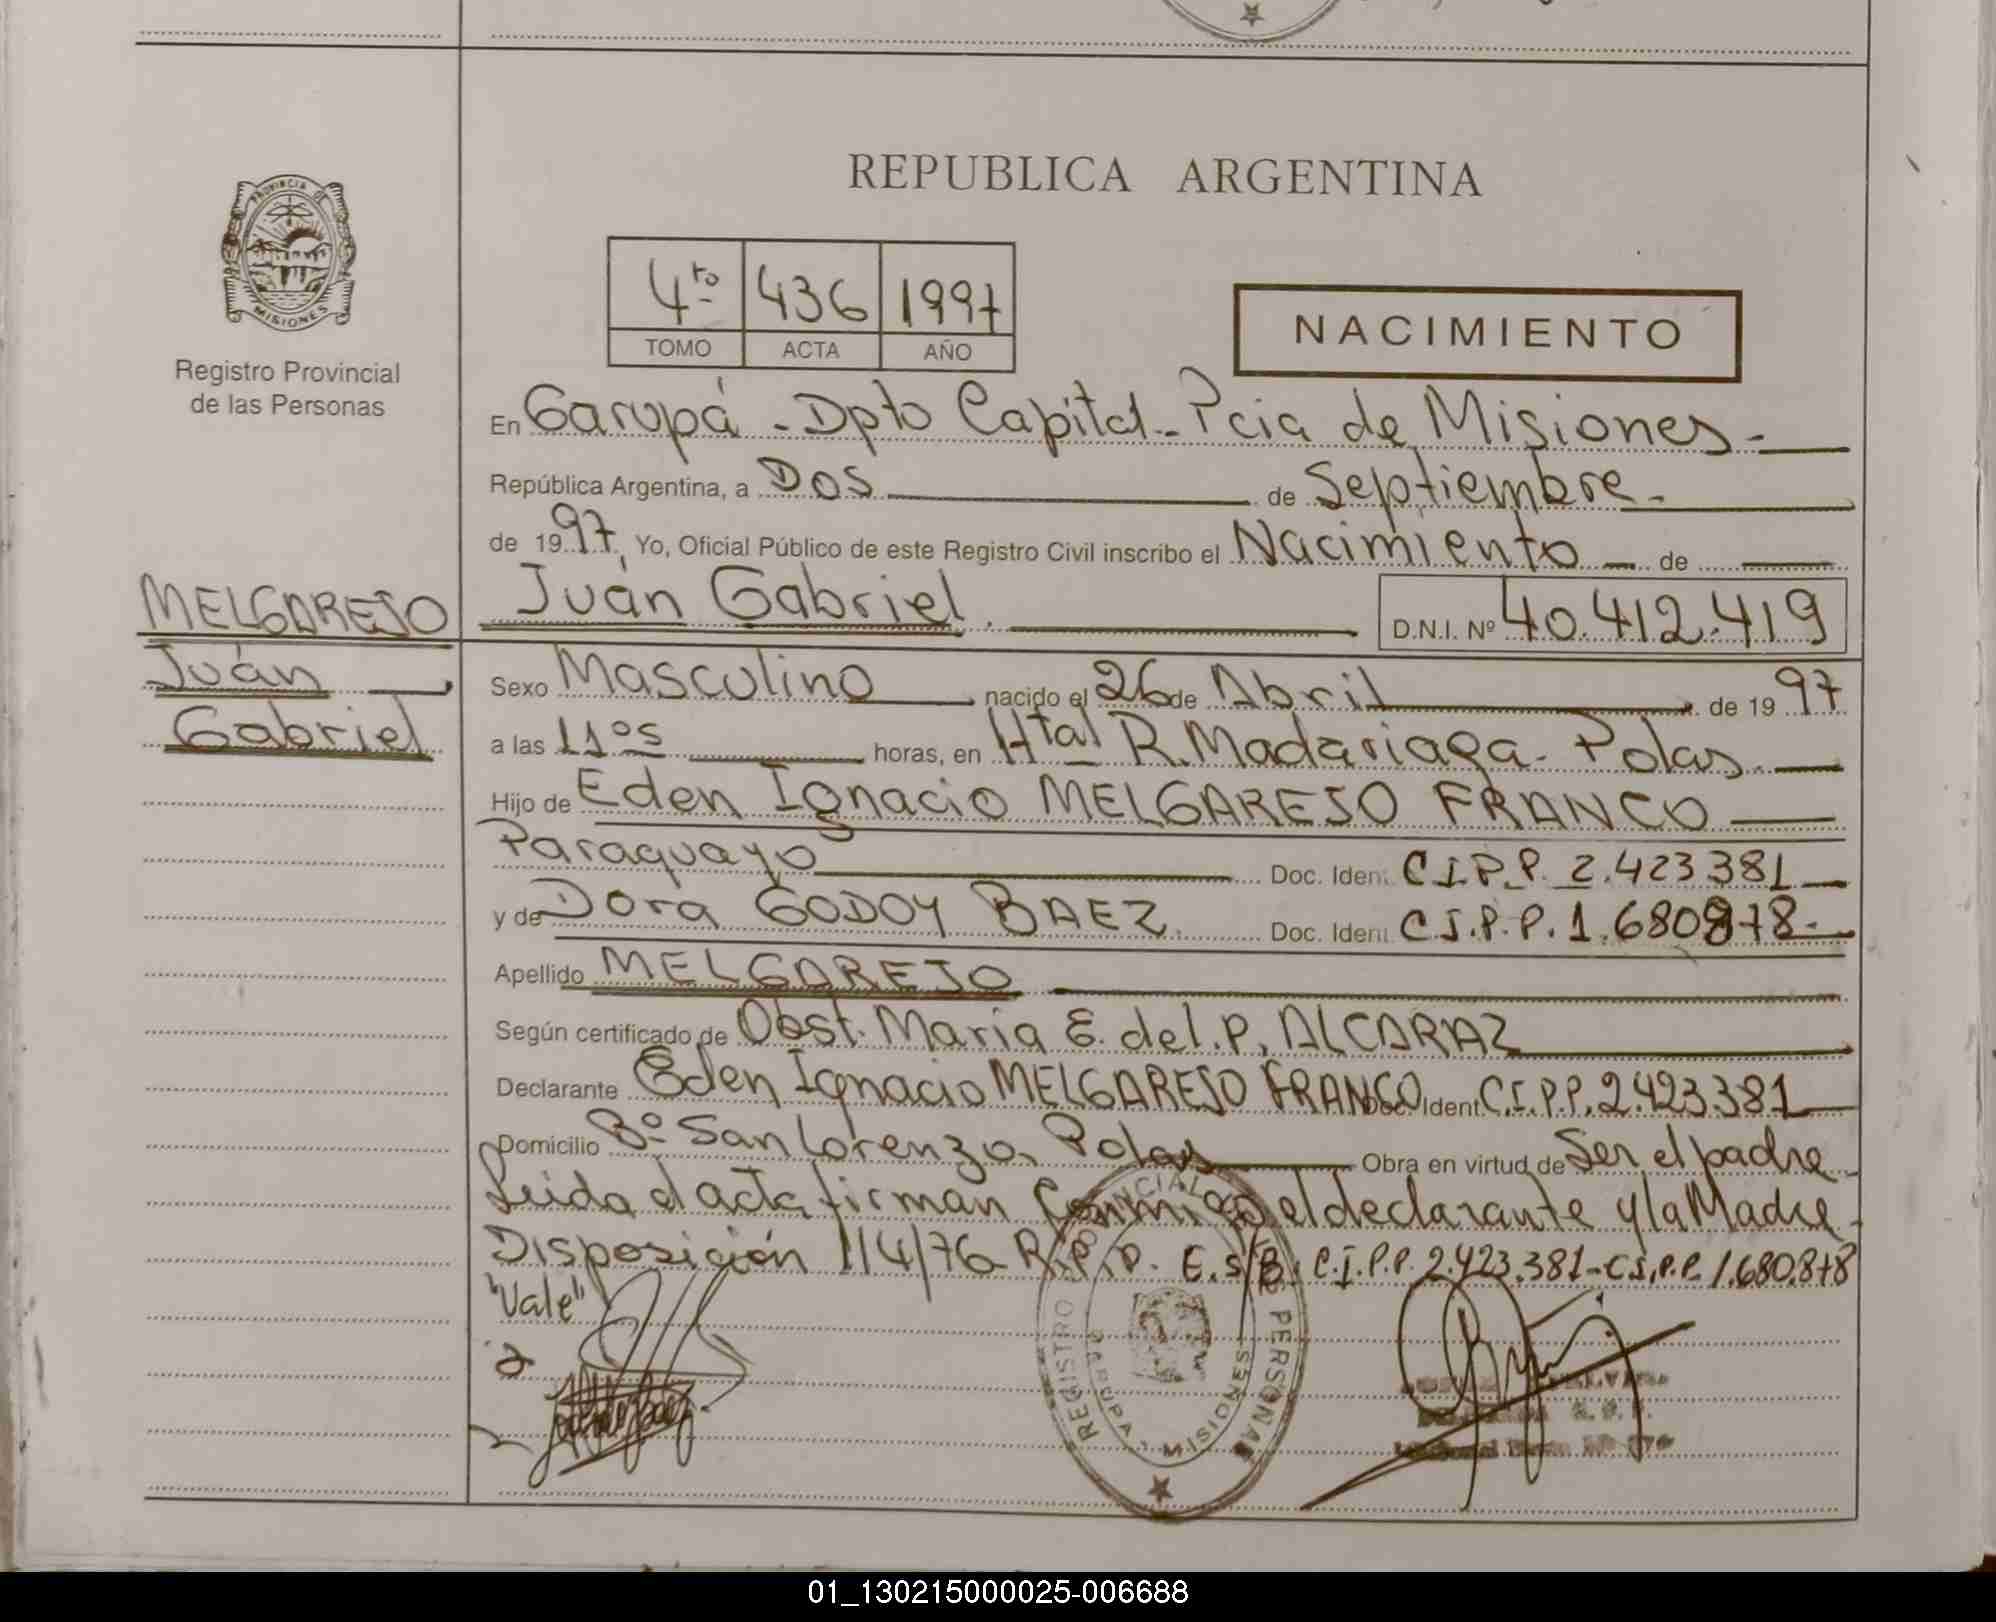 REPUBLICA ARGENTINA
PROVINCIA DE
MISIONES
Registro Provincial
de las Personas
4to 436 1997
TOMO ACTA AÑO
NACIMIENTO
En Garupá - Dpto Capital - Pcia de Misiones -
República Argentina, a Dos de Septiembre -
de 1997 Yo, Oficial Público de este Registro Civil inscribo el Nacimiento de
MELGAREJO
Juán
Gabriel
Juán Gabriel. D.N.I. Nº 40.412.419
Sexo Masculino nacido el 26 de Abril de 1997
a las 11os horas, en Htal R. Madariaga - Pdas.
Hijo de Eden Ignacio MELGAREJO FRANCO
Paraguayo Doc. Ident. C.I.P.P. 2.423381
y de Dora GODOY BAEZ. Doc. Ident. C.I.P.P. 1.680878-
Apellido MELGAREJO
Según certificado de Obst. Maria E. del P. ALCARAZ
Declarante Eden Ignacio MELGAREJO FRANCO Doc. Ident. C.I.P.P. 2.423.381
Domicilio Bº San Lorenzo, Pdas Obra en virtud de Ser el padre -
Leida el acta firman Conmigo el declarante y la Madre -
Disposición 114/76 R.P.P. E.S/B: C.I.P.P. 2.423.381 - C.I.P.P. 1.680.878
"Vale"
REGISTRO PROVINCIAL DE LAS PERSONAS
GARUPA - MISIONES
01_130215000025-006688